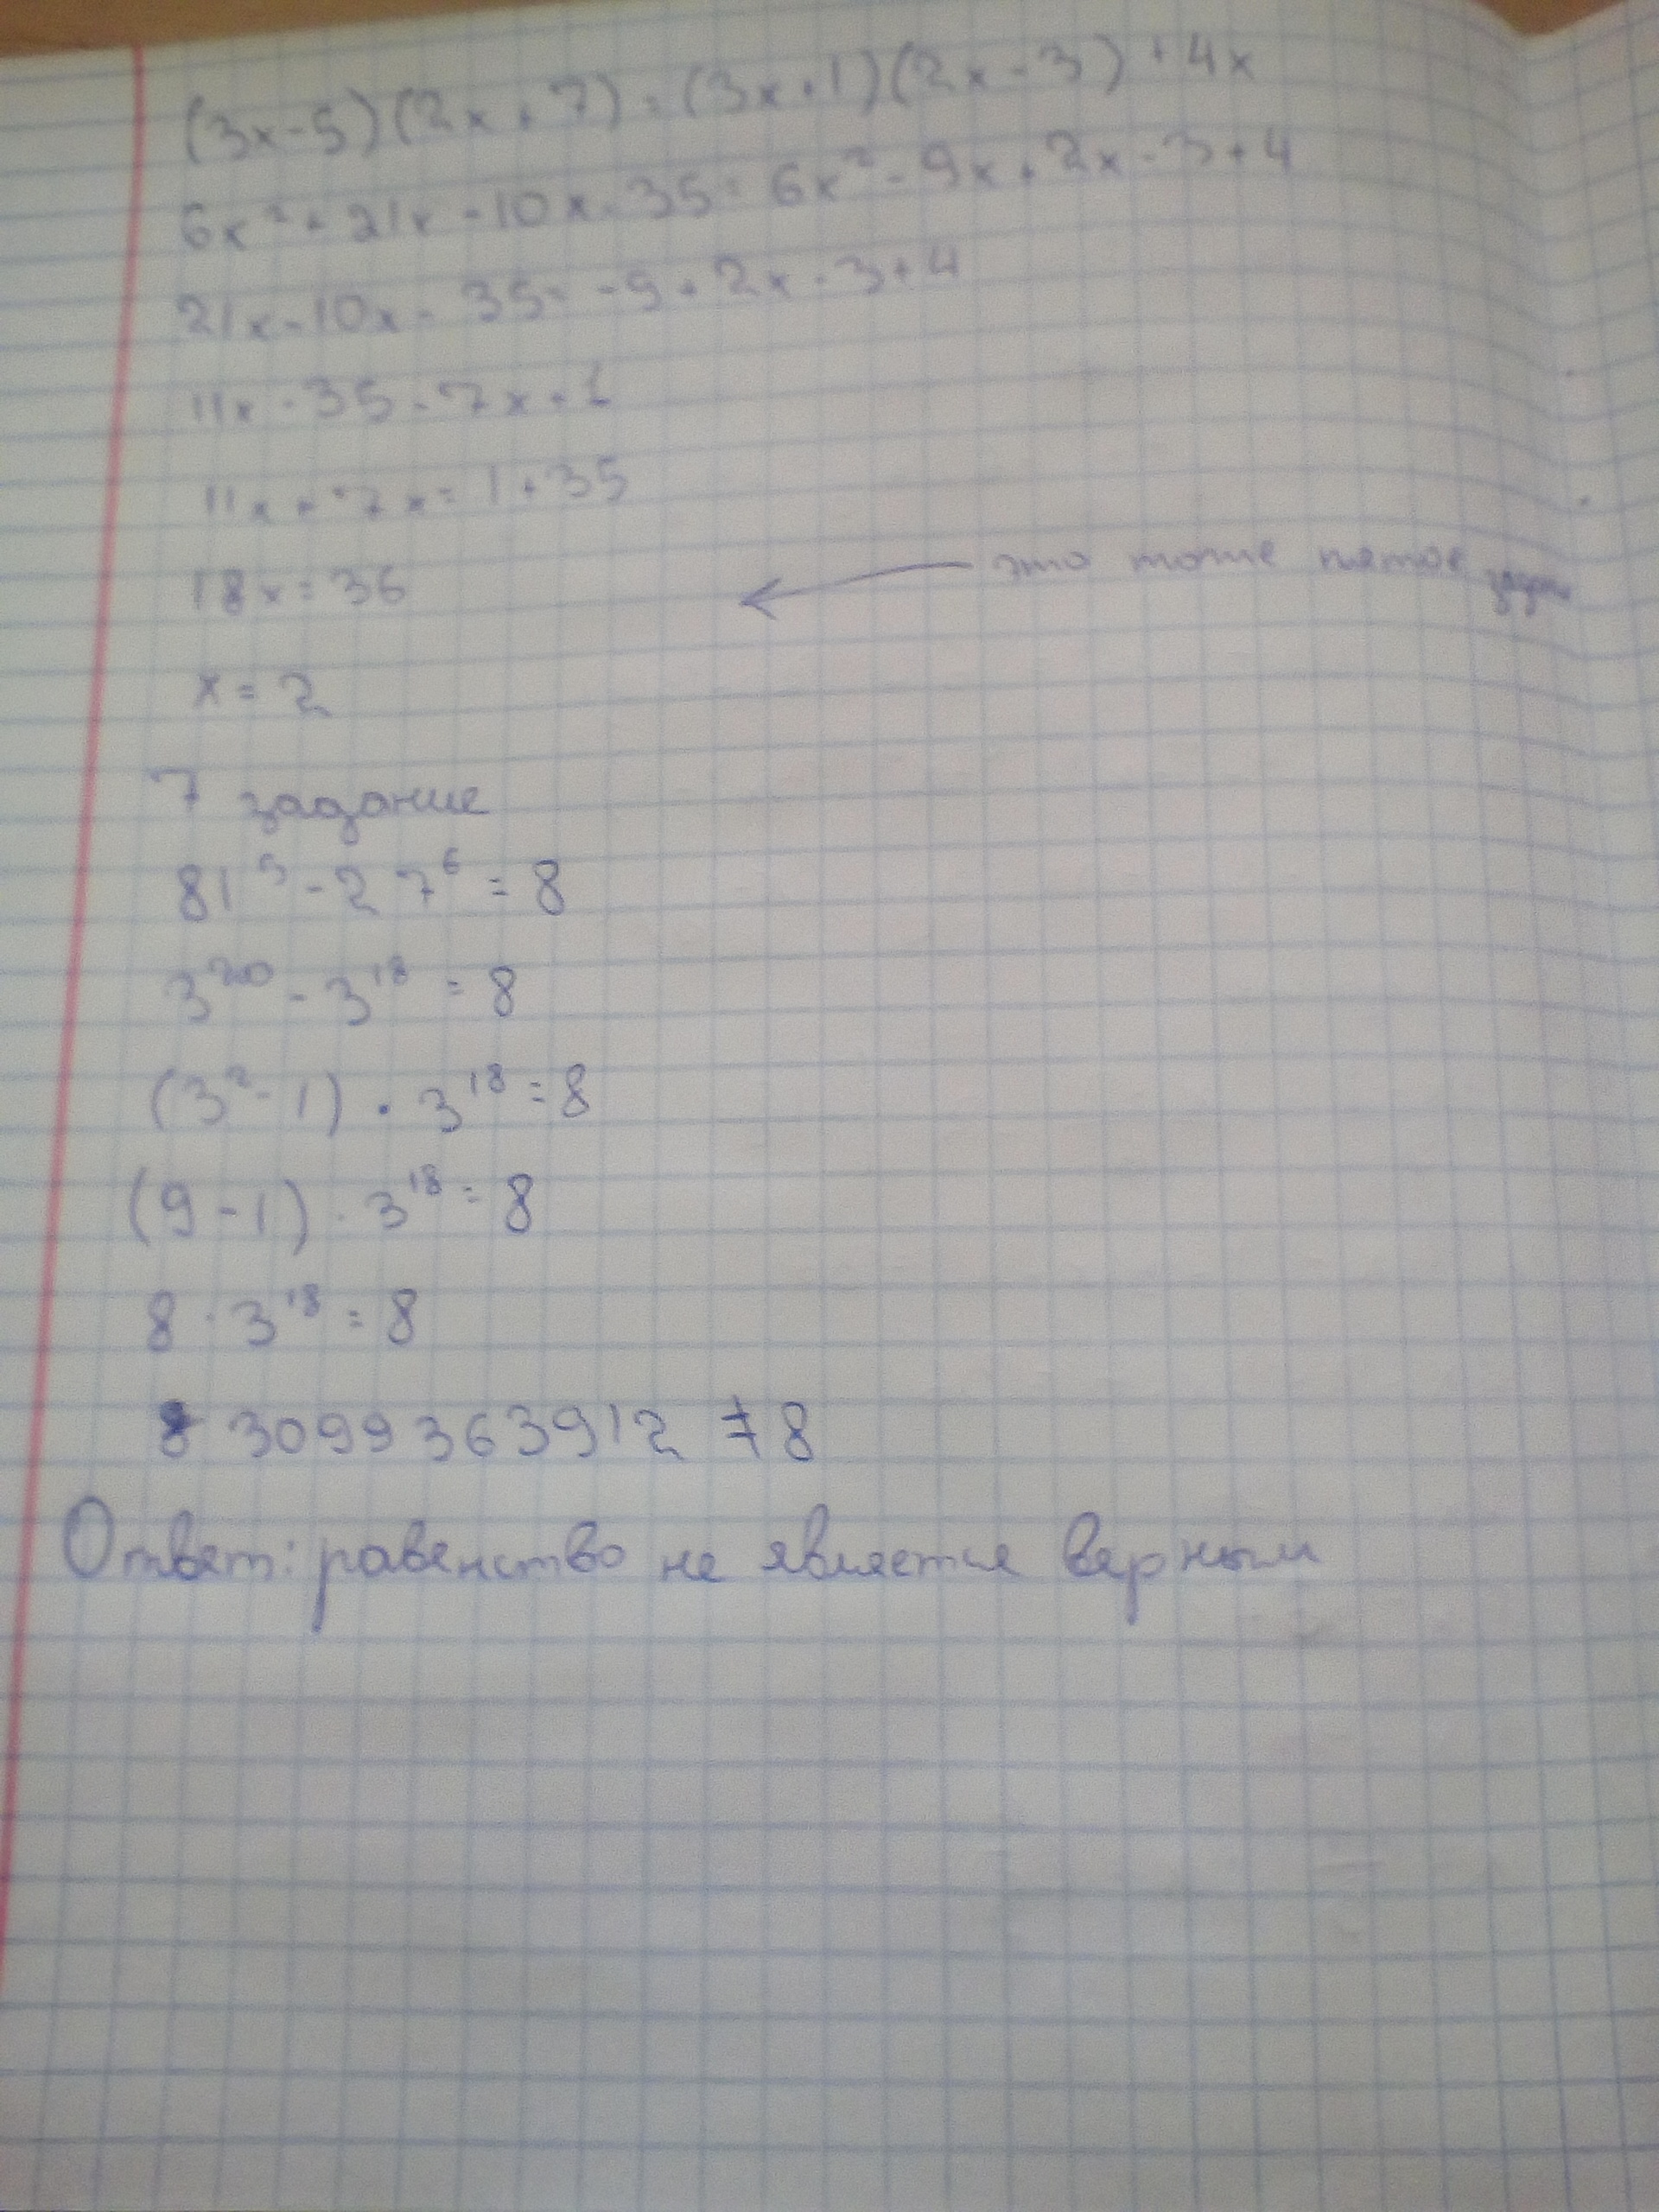 (3x-5)(2x+7)=(3x+1)(2x-3)+4x
6x²+21x-10x-35=6x²-9x+2x-3+4
21x-10x-35=-9+2x-3+4
11x-35=-7x+1
11x+7x=1+35
18x=36
это тоже пятое
x=2
7 задание
81⁵-27⁶=8
3²⁰-3¹⁸=8
(3²-1)·3¹⁸=8
(9-1)·3¹⁸=8
8·3¹⁸=8
3099363912≠8
Ответ: равенство не является верным